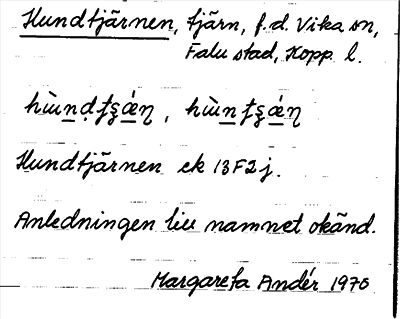 Hundtjärnen, tjärn, f.d. Vika sn,
Falu stad, Kopp l.
Hundtjärnen ek 13F2j.
Anledningen till namnet okänd.
Margareta Andér 1970